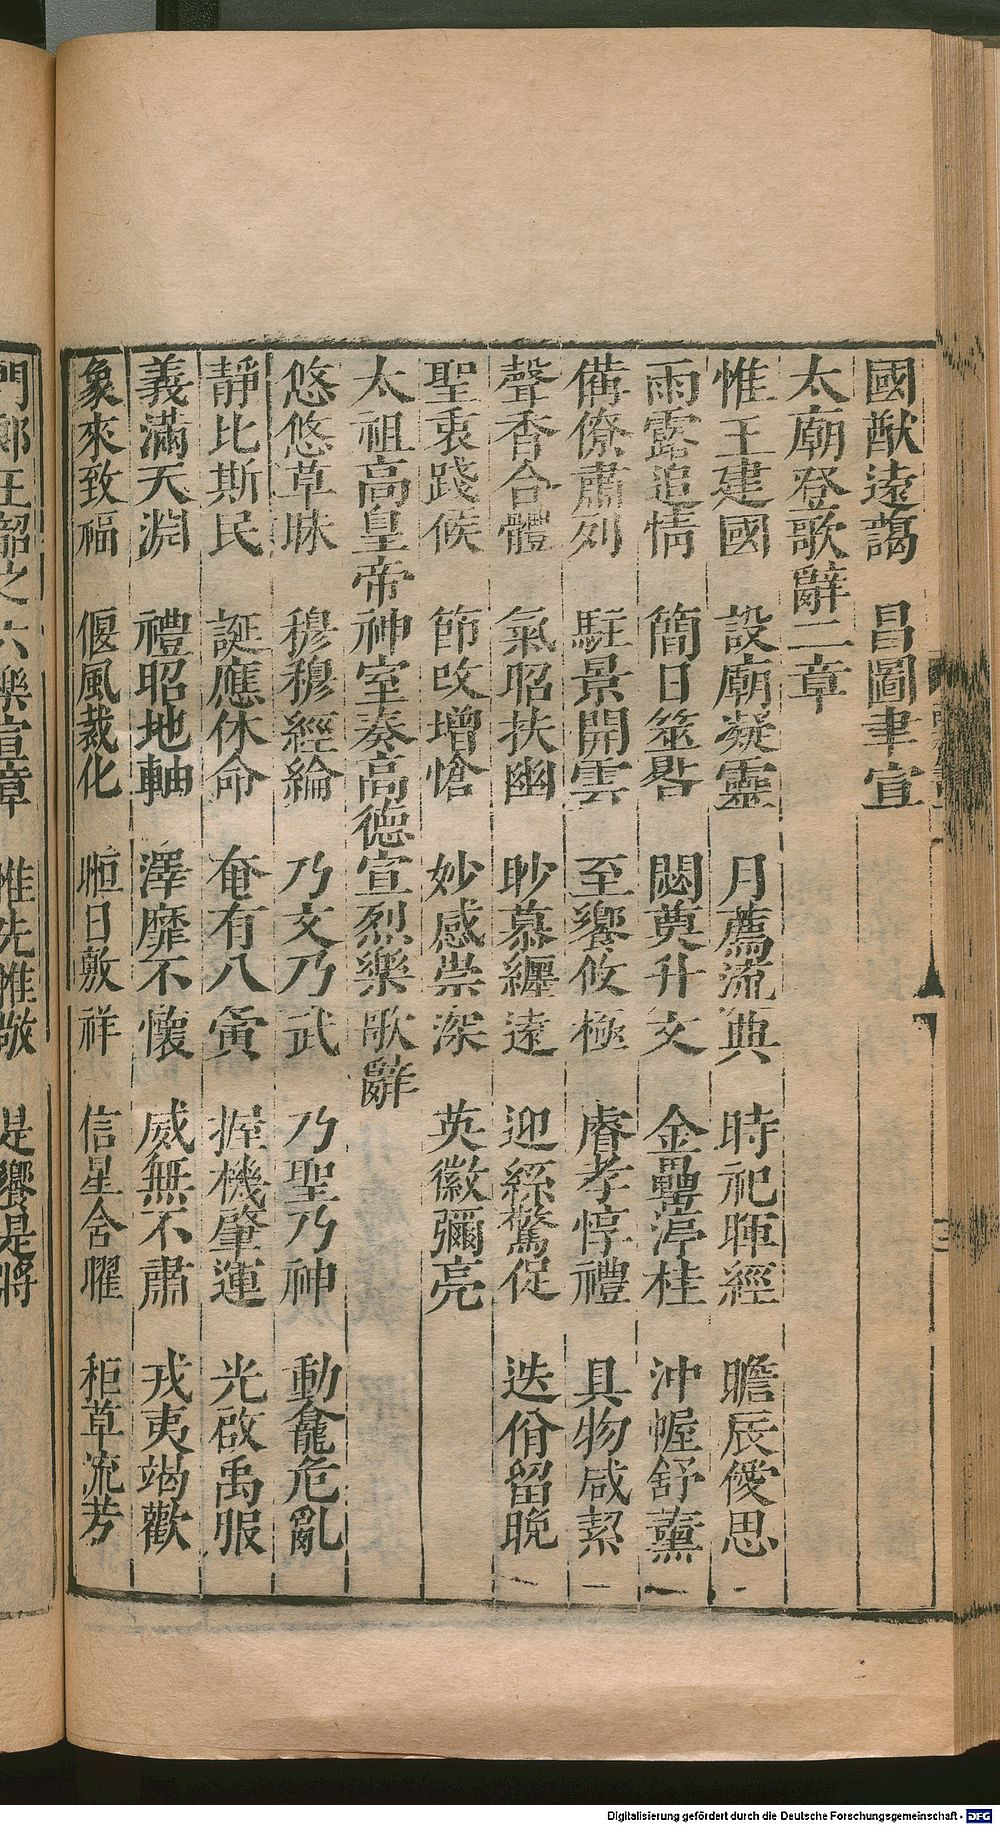 國猷遠藹　昌圖聿宣
太廟登歌辭二章
惟王建國　設廟凝靈　月薦流典　時祀暉經　瞻辰僾思
雨露追情　簡日筮晷　閟奠升文　金罍渟桂　沖幄舒薰
備僚肅列　駐景開雲　至饗攸極　睿孝惇禮　具物咸絜
聲香合體　氣昭扶幽　眇慕纒遠　迎絲驚促　迭佾留晚
聖衷踐候　節改增愴　妙感崇深　英徽彌亮
太祖高皇帝神室奏高德宣烈樂歌辭
悠悠草昧　穆穆經綸　乃文乃武　乃聖乃神　動龕危亂
靜比斯民　誕應休命　奄有八寅　握機肇運　光啟禹服
義滿天淵　禮昭地軸　澤靡不懷　威無不肅　戎夷竭歡
象來致福　偃風裁化　暅日敷祥　信星含曜　秬草流芳
惟先惟敬　是饗是將
Digitalisierung gefördert durch die Deutsche Forschungsgemeinschaft - DFG